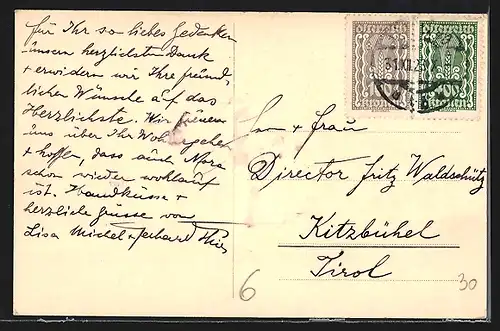 für Ihr so liebes Gedenken
unsern herzlichsten Dank
+ erwidern wir Ihre freund-
lichen Wünsche auf das
Herzlichste. Wir freuen
uns über Ihr Wohlergehen
+ hoffen, dass auch
schon wieder wohlauf
ist. Handküsse +
herzliche Grüsse von
Lisa Michel + Gerhard
österreich österreich
31.XI.23
Herrn + Frau
Director Fritz Waldschütz
Kitzbühel
Tirol
6
30